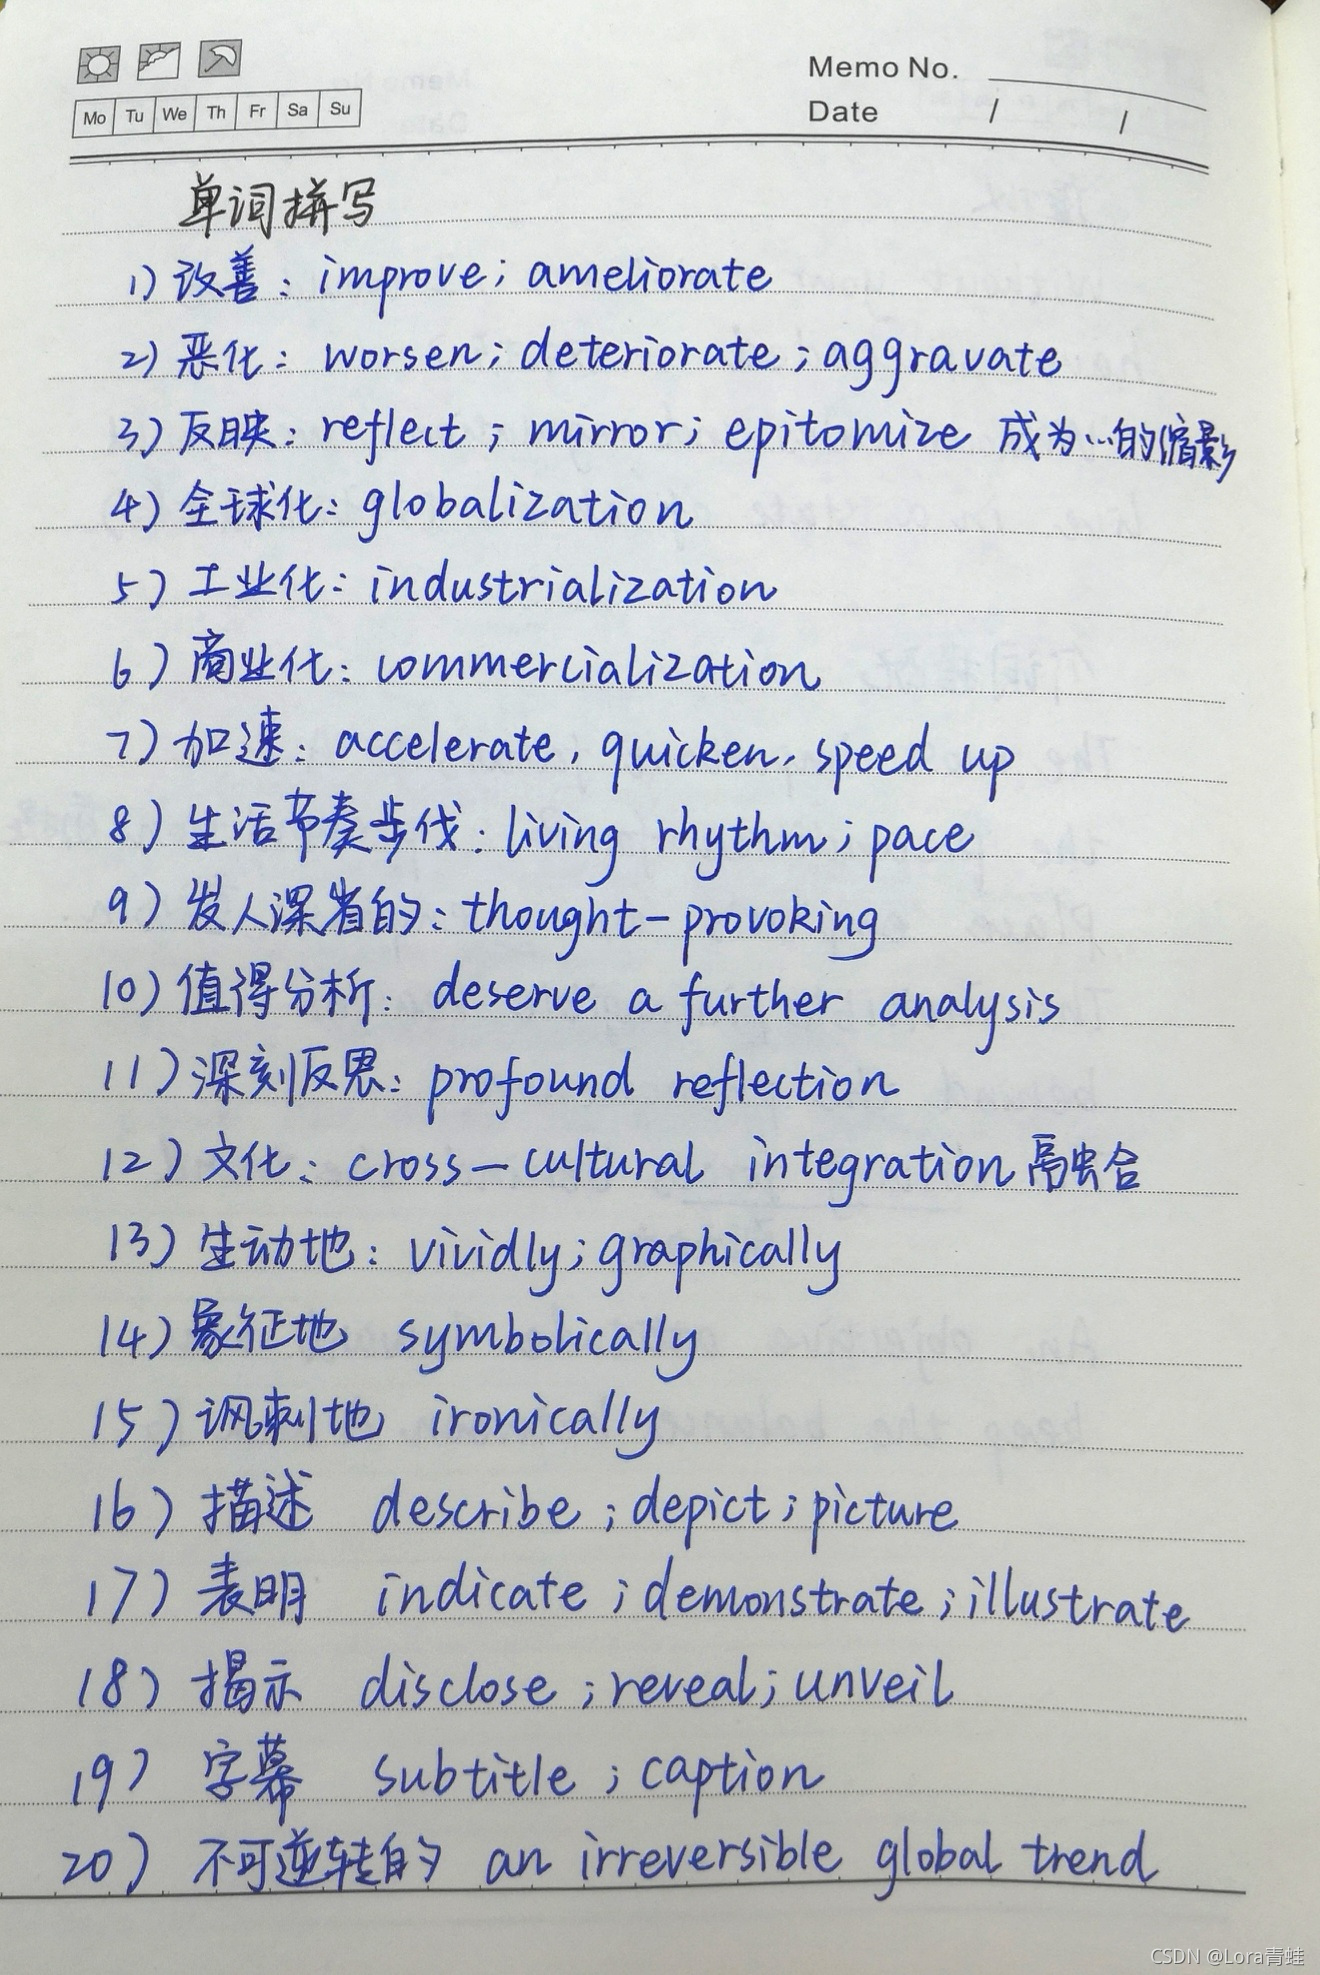 Memo No.
Mo Tu We Th Fr Sa Su
Date / /
单词拼写
1) 改善: improve; ameliorate
2) 恶化: worsen; deteriorate; aggravate
3) 反映: reflect; mirror; epitomize 成为...的缩影
4) 全球化: globalization
5) 工业化: industrialization
6) 商业化: commercialization
7) 加速: accelerate, quicken, speed up
8) 生活节奏步伐: living rhythm; pace
9) 发人深省的: thought-provoking
10) 值得分析: deserve a further analysis
11) 深刻反思: profound reflection
12) 文化: cross-cultural integration 融合
13) 生动地: vividly; graphically
14) 象征地 symbolically
15) 讽刺地 ironically
16) 描述 describe; depict; picture
17) 表明 indicate; demonstrate; illustrate
18) 揭示 disclose; reveal; unveil
19) 字幕 subtitle; caption
20) 不可逆转的 an irreversible global trend
CSDN @Lora青蛙